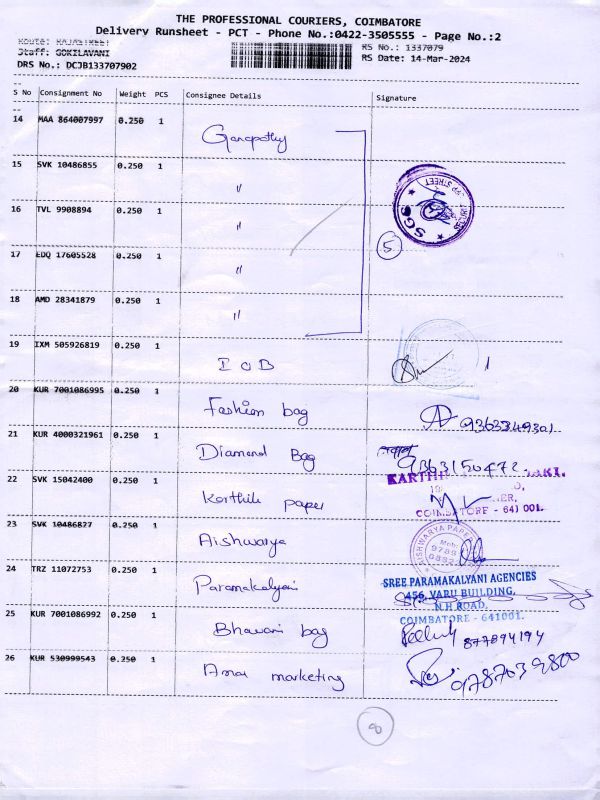 THE PROFESSIONAL COURIERS, COIMBATORE
Delivery Runsheet - PCT - Phone No.:0422-3505555 - Page No.:2
Route: RAJASTREET
Staff: GOKILAVANI
DRS No.: DCJB133707902
RS No.: 1337079
RS Date: 14-Mar-2024
S No Consignment No Weight PCS Consignee Details Signature
14 MAA 864007997 0.250 1 Ganapathy
15 SVK 10486855 0.250 1 "
16 TVL 9908894 0.250 1 "
17 EDQ 17605528 0.250 1 "
18 AMD 28341879 0.250 1 "
5
19 IXM 505926819 0.250 1 IOB 1
20 KUR 7001086995 0.250 1 Fashion bag
21 KUR 4000321961 0.250 1 Diamond Bag 9363150472
22 SVK 15042400 0.250 1 Karthik paper
COIMBATORE - 641 001.
23 SVK 10486827 0.250 1 Aishwarya
24 TRZ 11072753 0.250 1 Paramakalyani
SREE PARAMAKALYANI AGENCIES
456, VARU BUILDING,
N.H ROAD,
COIMBATORE - 641001.
25 KUR 7001086992 0.250 1 Bhavani bag 877894194
26 KUR 530999543 0.250 1 Amar marketing 9787039800
8